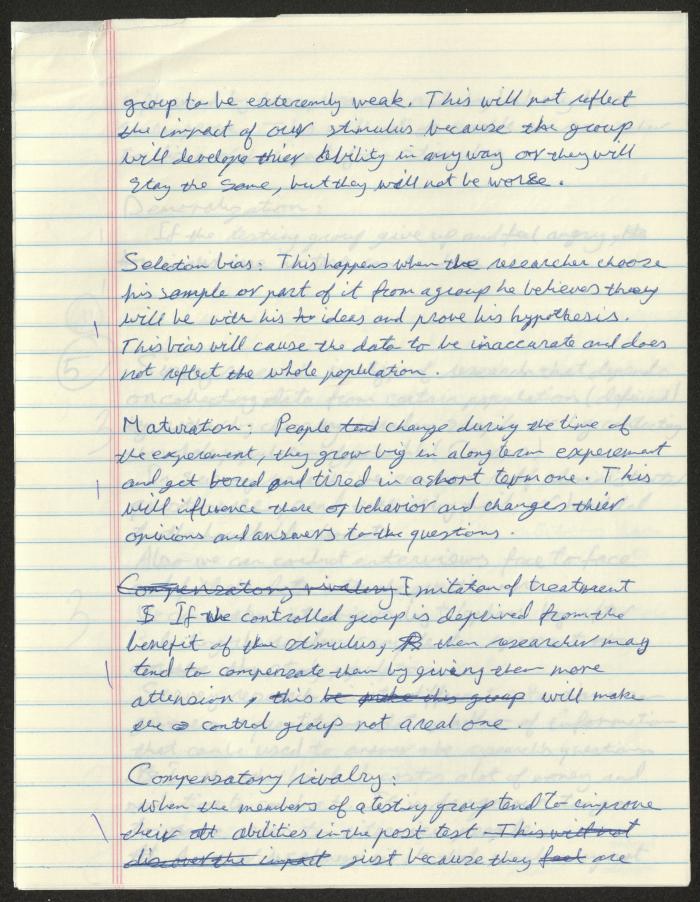 group to be exteremly weak. This will not reflect
the impact of our stimulus because the group
will develope thier ability in any way or they will
stay the same, but they will not be worse.
Selection bias: This happens when the researcher choose
his sample or part of it from a group he believes they
will be with his to ideas and prove his hypothesis.
This bias will cause the data to be inaccurate and does
not reflect the whole population.
Maturation: People tend change during the time of
the experement, they grow big in a long term experement
and get bored and tired in a short term one. This
will influence there or behavior and changes thier
opinions and answers to the questions.
Compensatory rivalery Imitation of treatment
If the controlled group is deprived from the
benefit of the stimulus, then researcher may
tend to compensate them by giveing them more
attension, this be make this group will make
the control group not a real one
Compensatory rivalry:
When the members of a testing group tend to improve
their abilities in the post test This will not
discover the impact just because they feel are